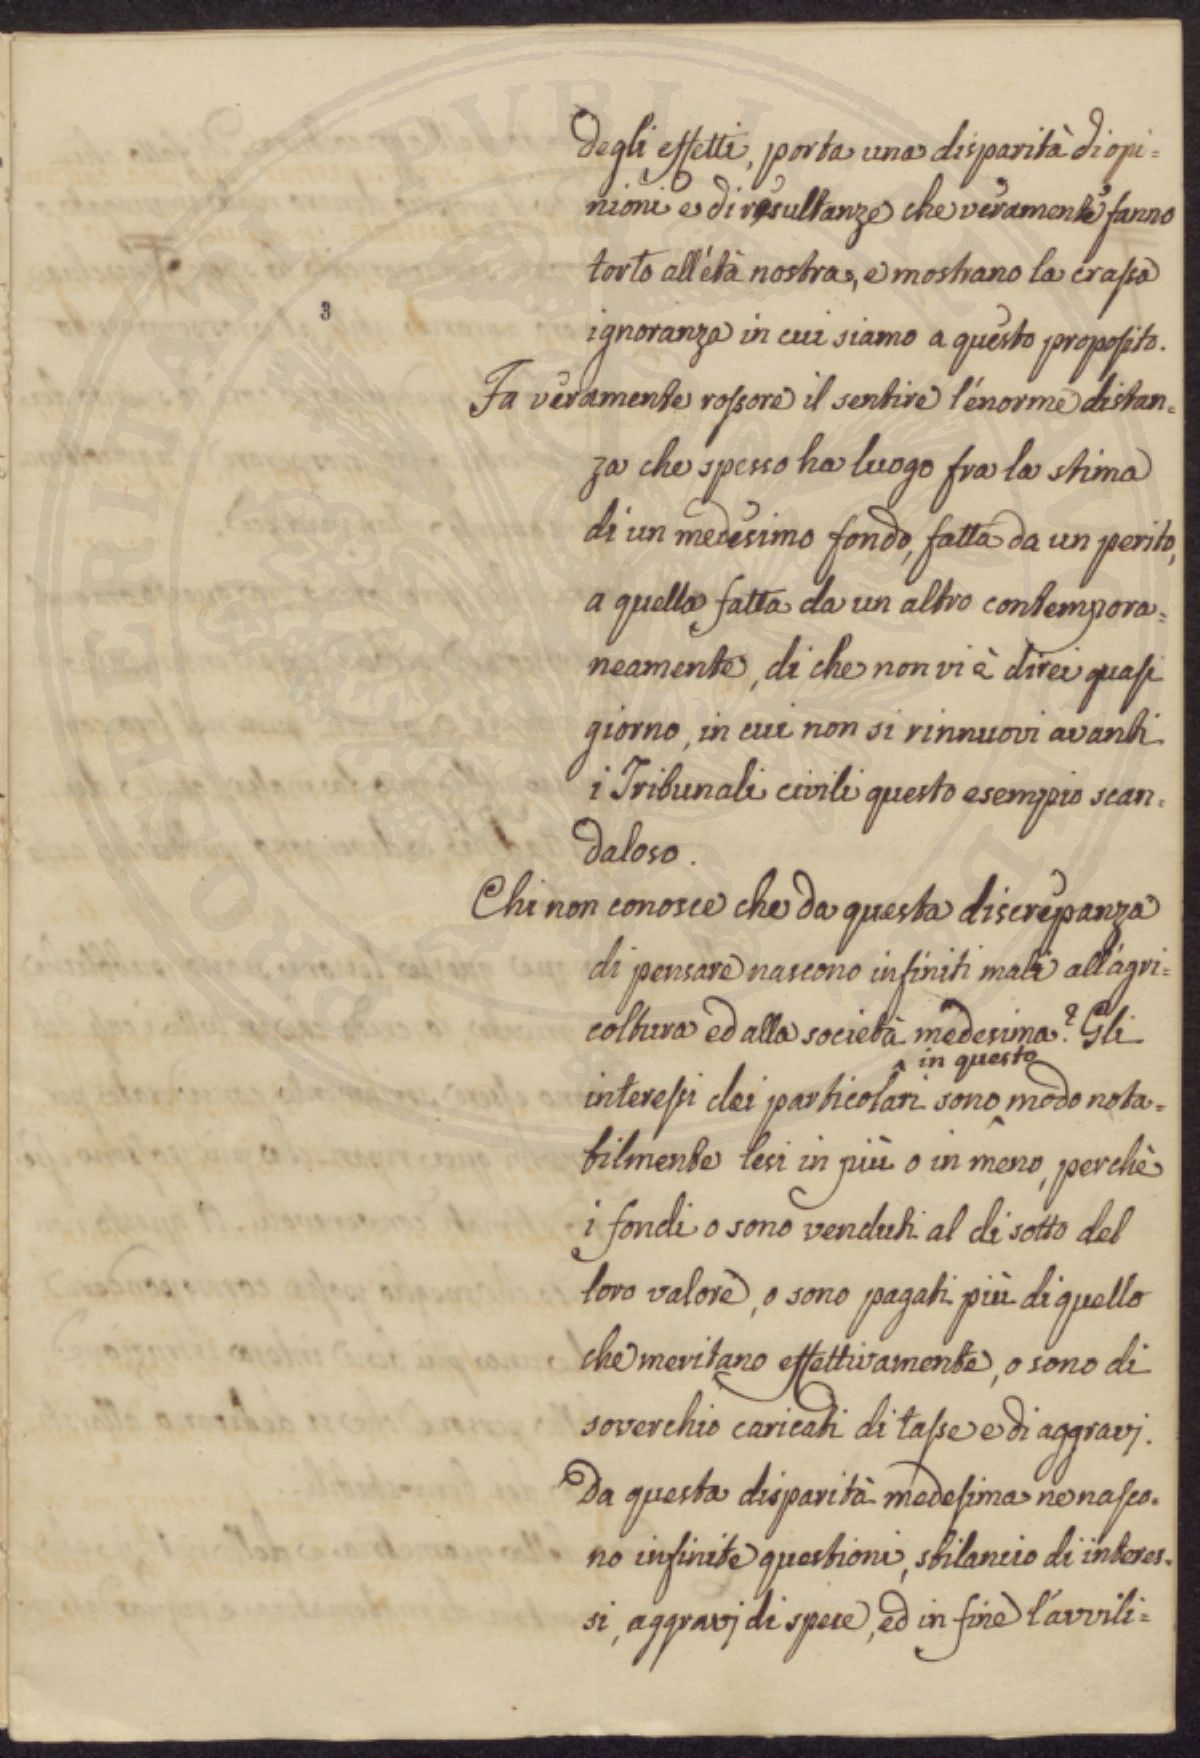 degli effetti, porta una disparità di opi=
nioni e di resultanze che veramente fanno
torto all'età nostra, e mostrano la crassa
3
ignoranza in cui siamo a questo proposito.
Fa veramente rossore il sentire l'enorme distan=
za che spesso ha luogo fra la stima
di un medesimo fondo, fatta da un perito,
a quella fatta da un altro contempora=
neamente, di che non vi è direi quasi
giorno, in cui non si rinnuovi avanti
i Tribunali civili questo esempio scan=
daloso.
Chi non conosce che da questa discrepanza
di pensare nascono infiniti mali all'agri=
coltura ed alla società medesima? Gli
in questo
interessi dei particolari sono modo nota=
bilmente lesi in più o in meno, perchè
i fondi o sono venduti al di sotto del
loro valore, o sono pagati più di quello
che meritano effettivamente, o sono di
soverchio caricati di tasse e di aggravj.
Da questa disparità medesima ne nasco=
no infinite questioni, sbilancio di interes=
si, aggravj di spese, ed in fine l'avvili=